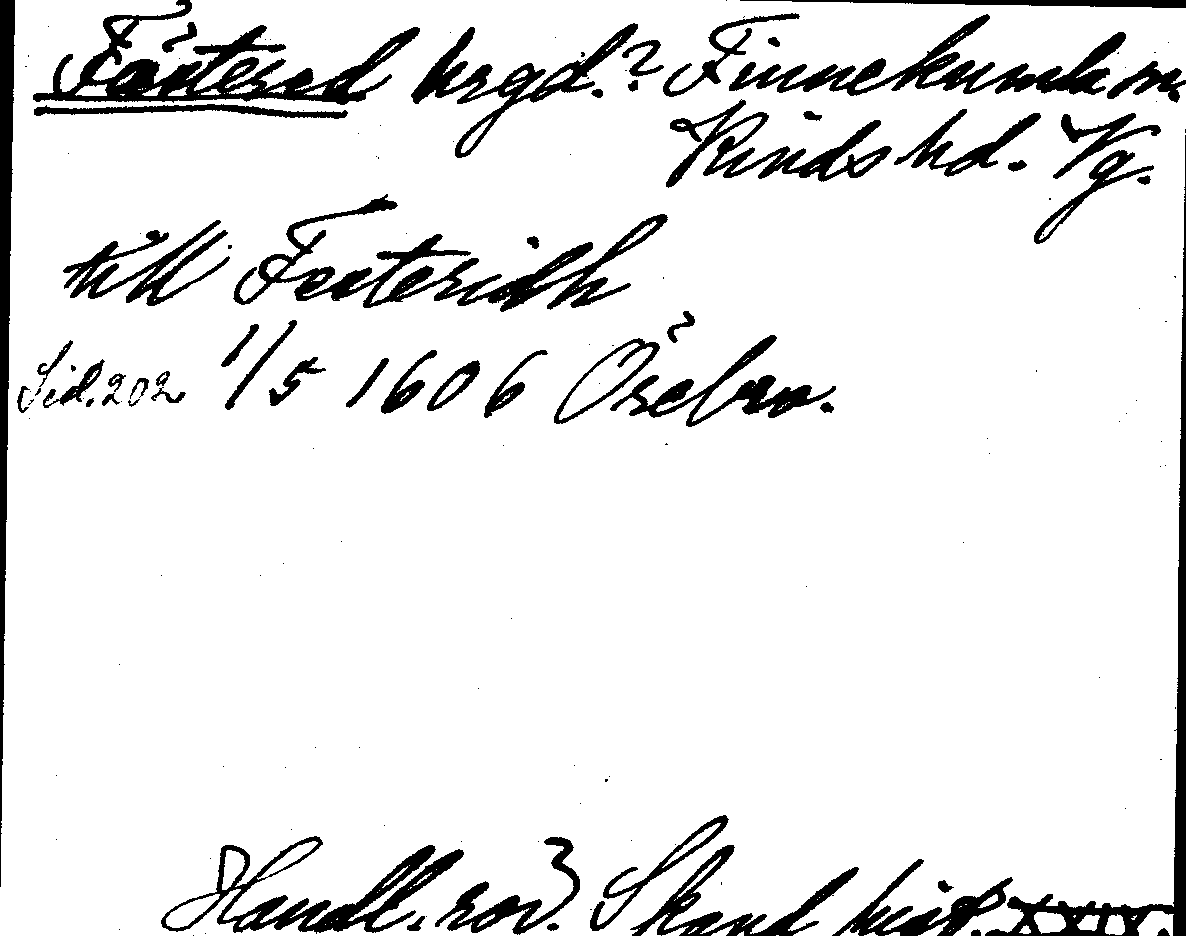 Fäxtered hrgd.? Finnekumla sn.
Kinds hd. Vg.
till Fexteridh
Sid. 202 1/5 1606 Örebro.
Handl. rör. Skand. hist. XXIX.